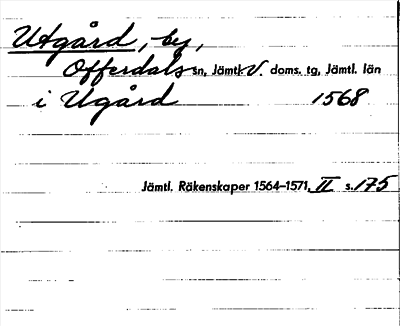 Utgård, by,
Offerdals sn, Jämtl. V. doms. tg, Jämtl. län
i Ugård 1568
Jämtl. Räkenskaper 1564-1571, II s. 175